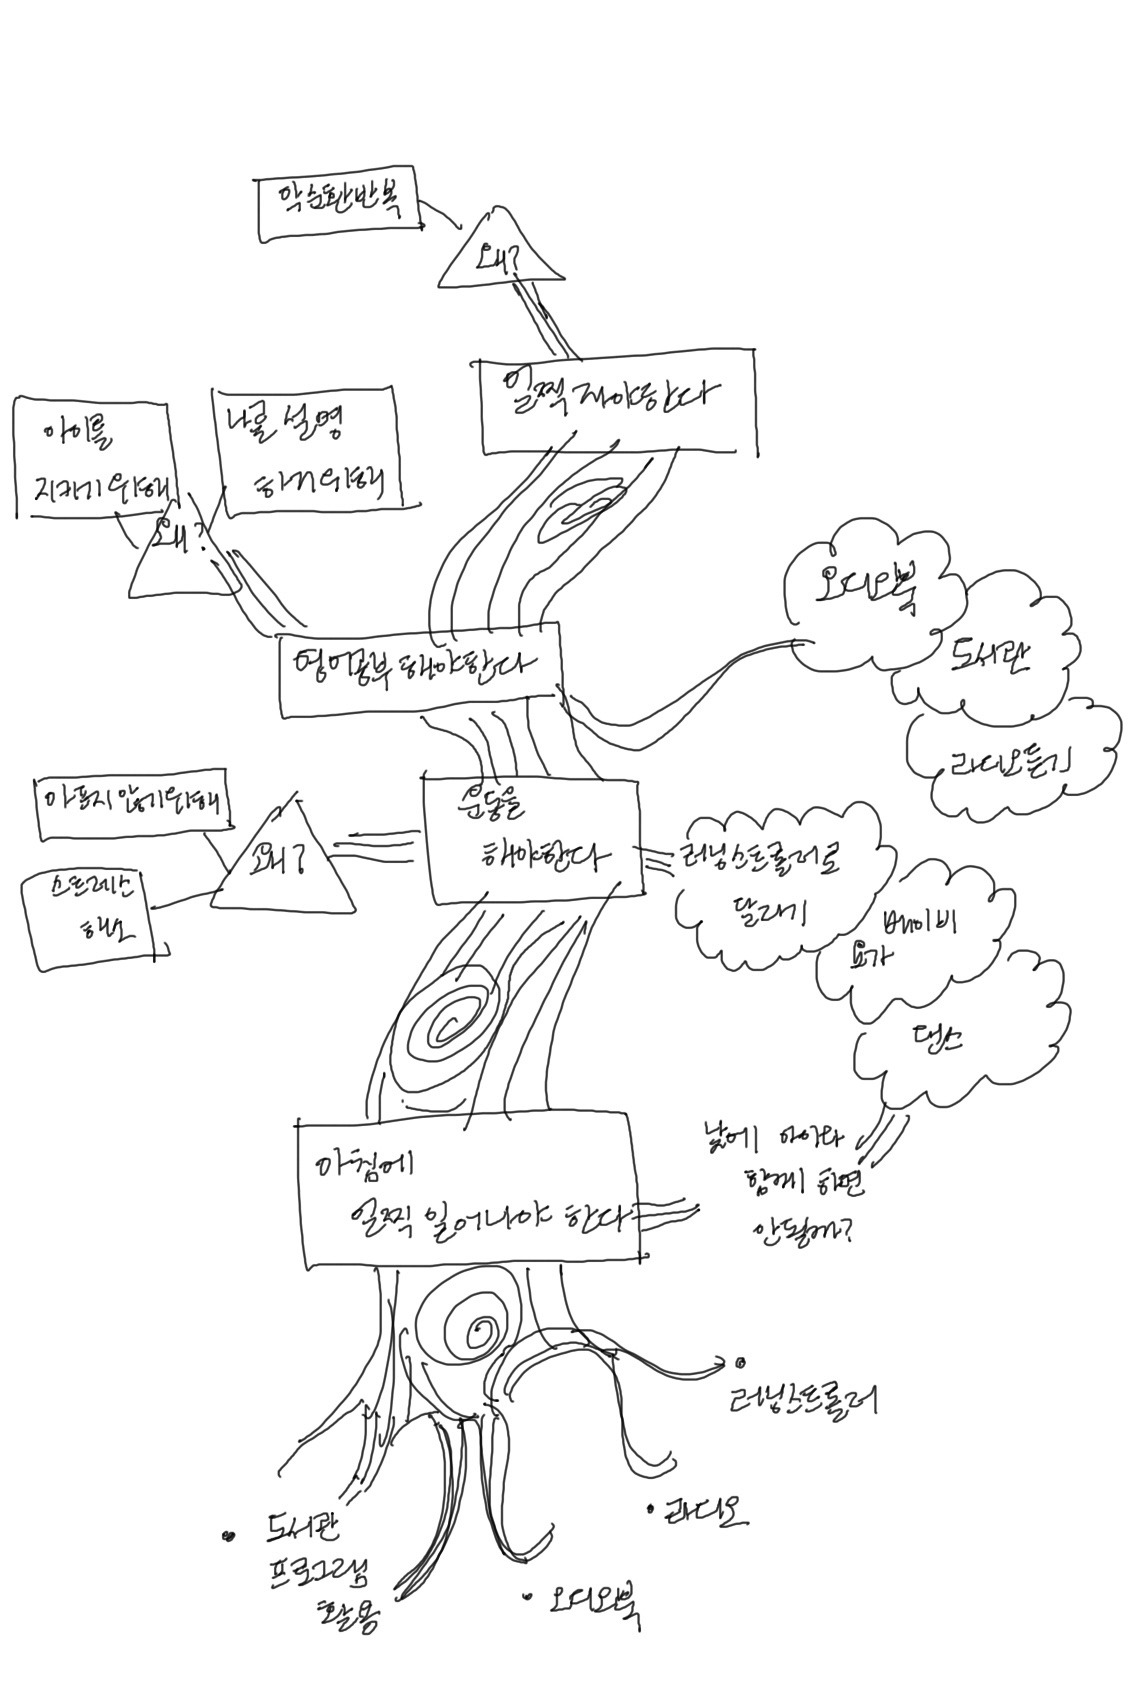 악순환반복
왜?
일찍 자야한다
아이를
지키기위해
나를 설명
하기위해
왜?
영어공부 해야한다
오디오북
도서관
라디오듣기
아프지않기위해
스트레스
해소
왜?
운동을
해야한다
러닝스트롤러로
달리기
베이비
요가
댄스
아침에
일찍 일어나야 한다
낮에 아이와
함께 하면
안될까?
러닝스트롤러
라디오
오디오북
도서관
프로그램
활용